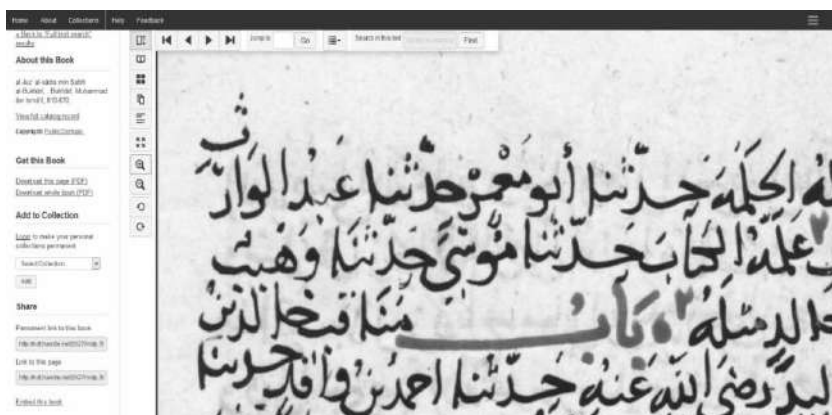 Home About Collections Help Feedback
« Back to "Full-text search" results
About this Book
Muhammad
View full catalog record
Copyright: Public Domain.
Get this Book
Download this page (PDF)
Download whole book (PDF)
Add to Collection
Login to make your personal
collections permanent
Select Collection
Add
Share
Permanent link to this book
Link to this page
Embed this book
Jump to Go Search in this text Find
الحكمة حدثنا أبو معمر حدثنا عبد الوارث
علمه الكتاب حدثنا موسى حدثنا وهيب
خالد مثله باب مناقب خالد بن
رضي الله عنه حدثنا احمد بن واقد حدثنا